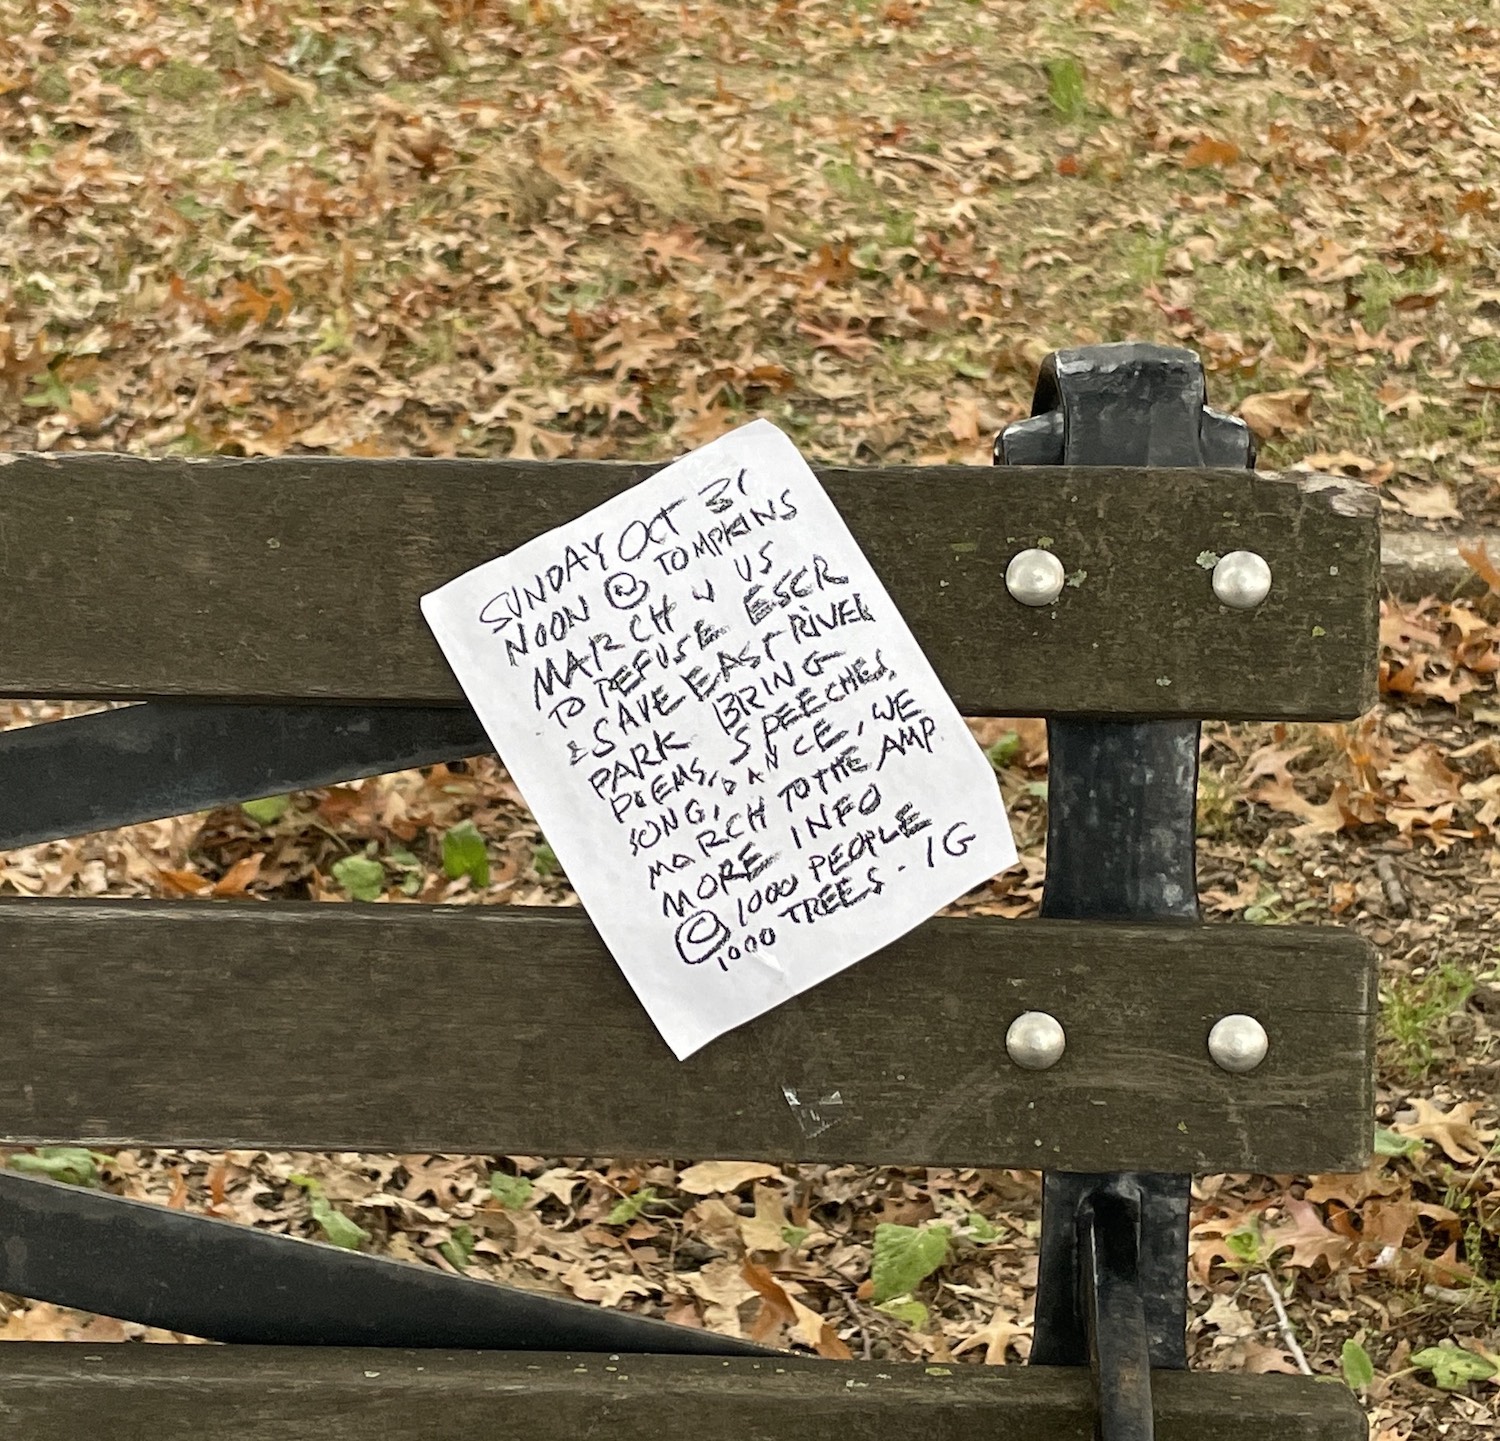 SUNDAY OCT 31
NOON @ TOMPKINS
MARCH W US
TO REFUSE ESCR
& SAVE EAST RIVER
PARK BRING
POEMS, SPEECHES,
SONG, DANCE, WE
MARCH TO THE AMP.
MORE INFO
@ 1000 PEOPLE
1000 TREES - IG